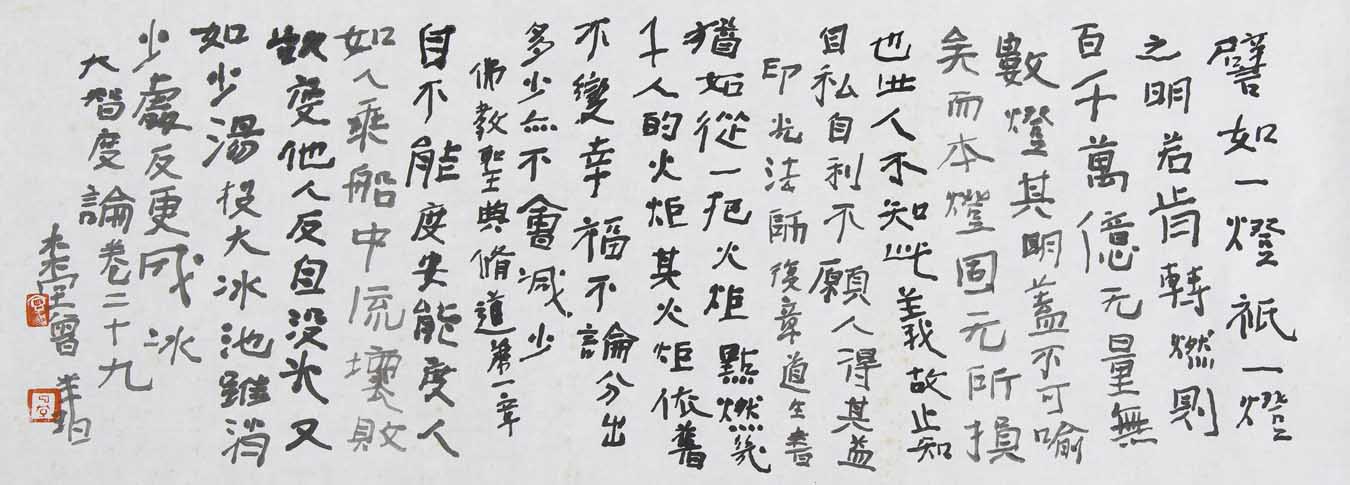 譬如一燈祇一燈
之明若肯轉燃則
百千萬億无量無
數燈其明蓋不可喻
矣而本燈固无所損
也世人不知此義故止知
自私自利不願人得其益
印光法師復章道生書
猶如從一把火炬點燃幾
千人的火炬其火炬依舊
不變幸福不論分出
多少亦不會減少
佛教聖典脩道第一章
自不能度安能度人
如人乘船中流壞敗
欲度他人反自沒水又
如少湯投大冰池雖消
少處反更成冰
大智度論卷二十九
堂曾